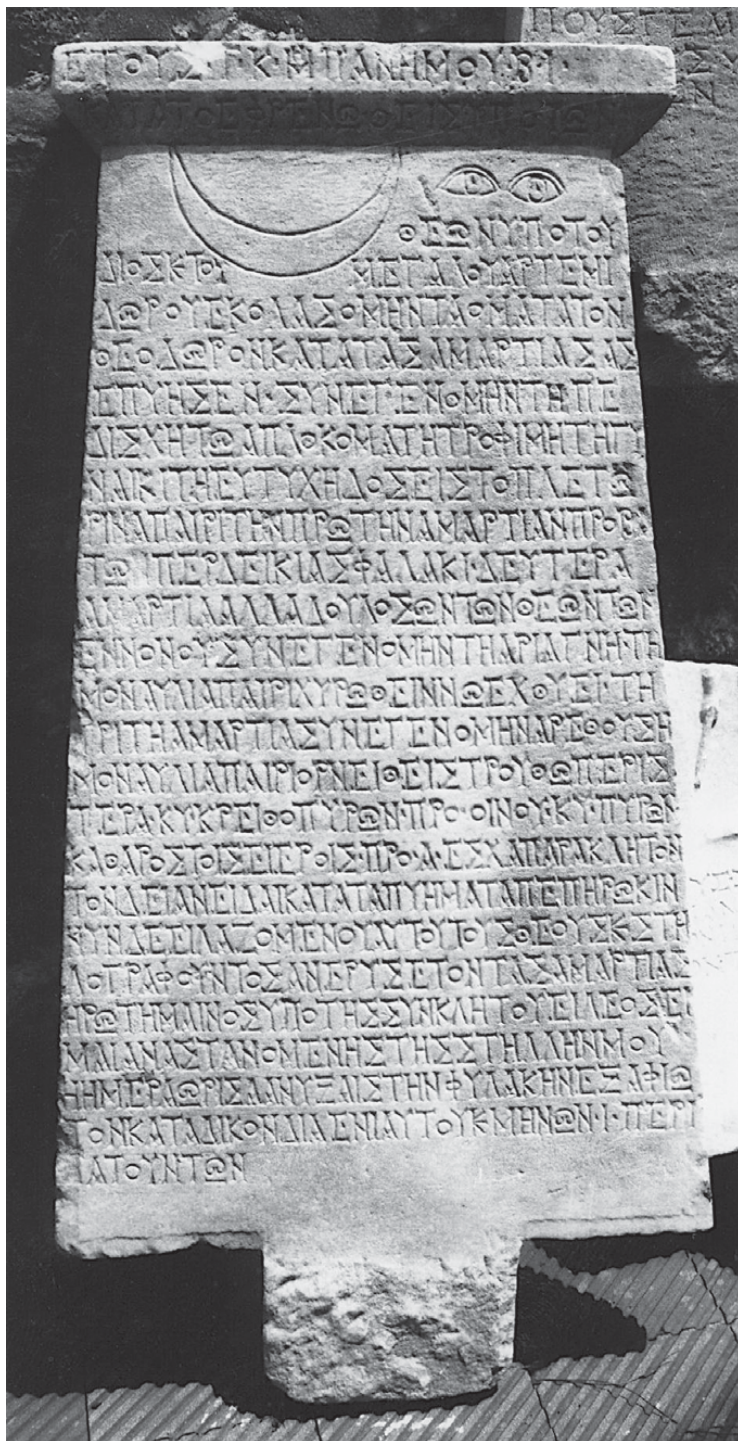 ΕΤΟΥΣ·Τ·Κ·ΜΠΑΝΗΜΟΥ·ΒΙ·
ΚΑΤΑΤΟΕΦΡΕΝΩΘΕΙΣΥΠΟΤΩΝ
ΘΕΩΝΥΠΟΤΟΥ
ΔΙΟΣΚΕΤΟΥ ΜΕΓΑΛΟΥΑΡΤΕΜΙ
ΔΩΡΟΥΕΚΟΛΑΣΟΜΗΝΤΑΟΜΑΤΑΤΟΝ
ΘΕΟΔΩΡΟΝΚΑΤΑΤΑΣΑΜΑΡΤΙΑΣΑΣ
ΕΠΥΗΣΕΝ·ΣΥΝΕΓΕΝΟΜΗΝΤΗΠΕ
ΔΙΣΧΗΤΩΑΠΛΟΚΟΜΑΤΗΤΡΟΦΙΜΗΤΗΓΥ
ΝΑΙΚΙΤΗΕΥΤΥΧΗΔΟΣΕΙΣΤΟΠΛΕΤΩ
ΡΙΝΑΠΑΙΡΙΤΗΝΠΡΩΤΗΝΑΜΑΡΤΙΑΝΠΡΟΒΑ
ΤΩΙΠΕΡΔΕΙΚΙΑΣΦΑΛΑΚΙ·ΔΕΥΤΕΡΑ
ΑΜΑΡΤΙΑΑΛΛΑΔΟΥΛΟΣΩΝΤΩΝΘΕΩΝΤΩΝ
ΕΝΝΟΝΟΥ·ΣΥΝΕΓΕΝΟΜΗΝΤΗΑΡΙΑΓΝΗ·ΤΗ
ΜΟΝΑΥΛΙΑΠΑΙΡΙΧΥΡΩΘΕΙΝΝΩΕΧΘΥΕΙ·ΤΗ
ΤΡΙΤΗΑΜΑΡΤΙΑΣΥΝΕΓΕΝΟΜΗΝΑΡΕΘΟΥΣΗ
ΜΟΝΑΥΛΙΑΠΑΙΡΙΟΡΝΕΙΘΕΙΣΤΡΟΥΘΩΠΕΡΙΣ
ΤΕΡΑΚΥ·ΚΡΕΙΘΟΠΥΡΩΝ·ΠΡΟ·ΟΙΝΟΥ·ΚΥ·ΠΥΡΩΝ
ΚΑΘΑΡΟΣΤΟΙΣΕΙΕΡΟΙΣ·ΠΡΟ·Α·ΕΣΧΑΠΑΡΑΚΛΗΤΟΝ
ΤΟΝΔΕΙΑΝΕΙΔΑΙΚΑΤΑΤΑΠΥΗΜΑΤΑΠΕΠΗΡΩΚΙΝ
ΝΥΝΔΕΕΙΛΑΖΟΜΕΝΟΥΑΥΤΟΥΤΟΥΣΘΕΟΥΣΚΕΣΤΗ
ΛΟΓΡΑΦΟΥΝΤΟΣΑΝΕΡΥΣΕΤΟΝΤΑΣΑΜΑΡΤΙΑΣ
ΗΡΩΤΗΜΑΙΝΟΣΥΠΟΤΗΣΣΥΝΚΛΗΤΟΥΕΙΛΕΟΣΕΙ
ΜΑΙΑΝΑΣΤΑΝΟΜΕΝΗΣΤΗΣΣΤΗΛΛΗΝΜΟΥ
ΗΗΜΕΡΑΩΡΙΣΑΑΝΥΞΑΙΣΤΗΝΦΥΛΑΚΗΝΕΞΑΦΙΩ
ΤΟΝΚΑΤΑΔΙΚΟΝΔΙΑΕΝΙΑΥΤΟΥΚΜΗΝΩΝ·Ι·ΠΕΡΙ
ΠΑΤΟΥΝΤΩΝ